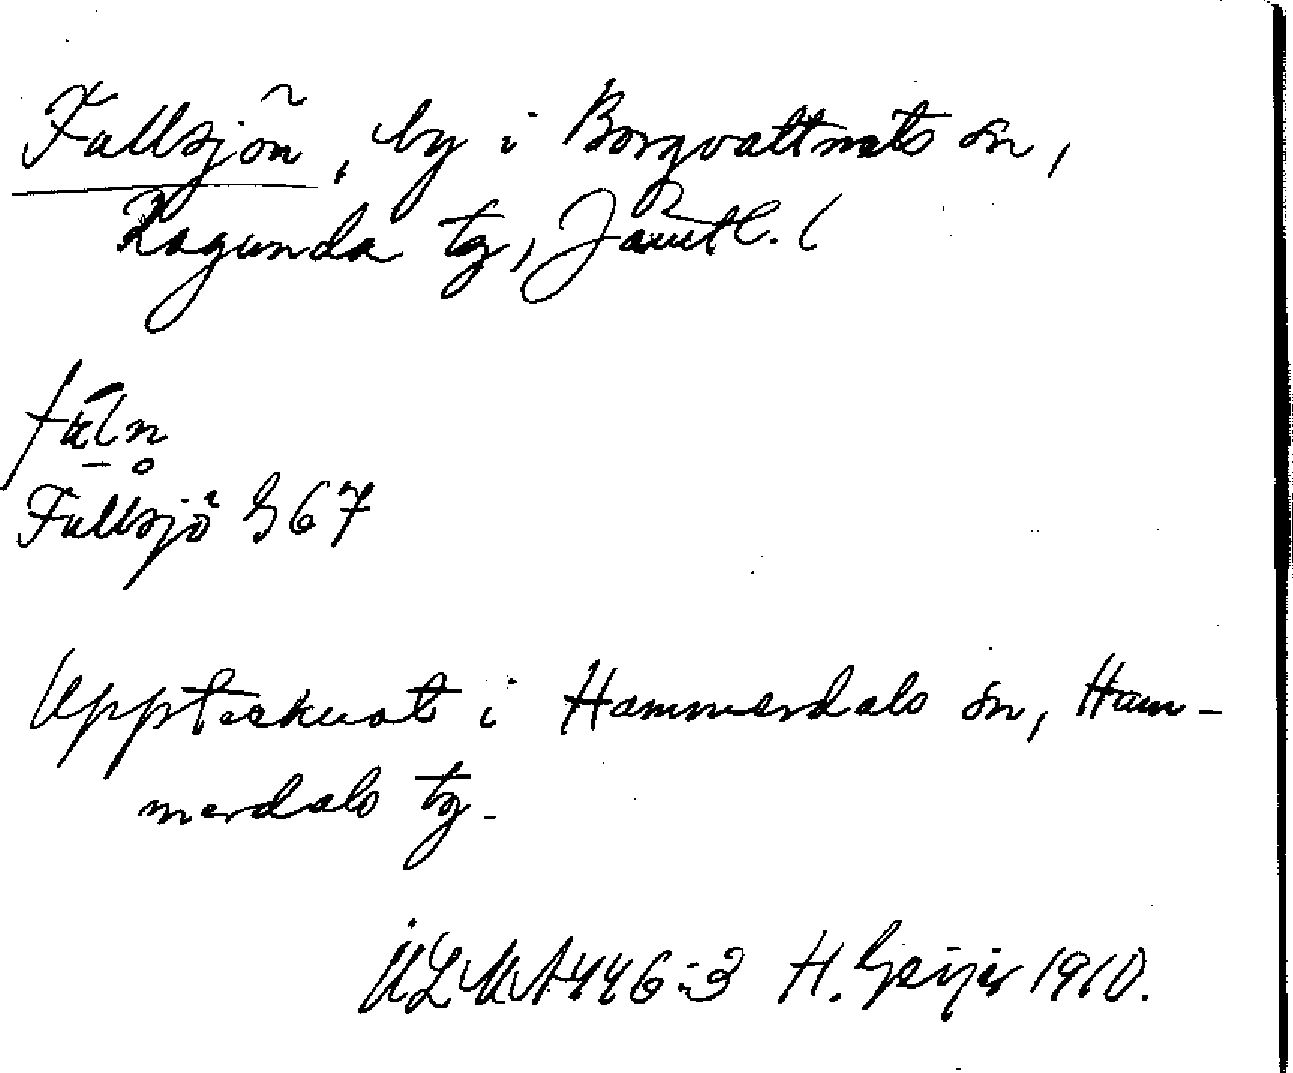 Fullsjön, by i Borgvattnets sn,
Ragunda tg, Jämtl. l
Fullsjö § 67
Upptecknat i Hammerdals sn, Ham-
merdals tg.
ULMA 446:3 H. Geijer 1910.